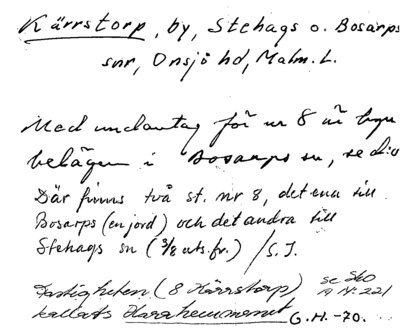 Kärrstorp, by, Stehags o. Bosarps
snr, Onsjö hd, Malm. L.
Med undantag för nr 8 är byn
belägen i Bosarps sn, se d:o
Där finns två st. nr 8, det ena till
Bosarps (en jord) och det andra till
Stehags sn (3/8 uts. fr.) / S. I.
Fastigheten (8 Kärrstorp) se SkO
kallats Harahemmanet G. H. -70.